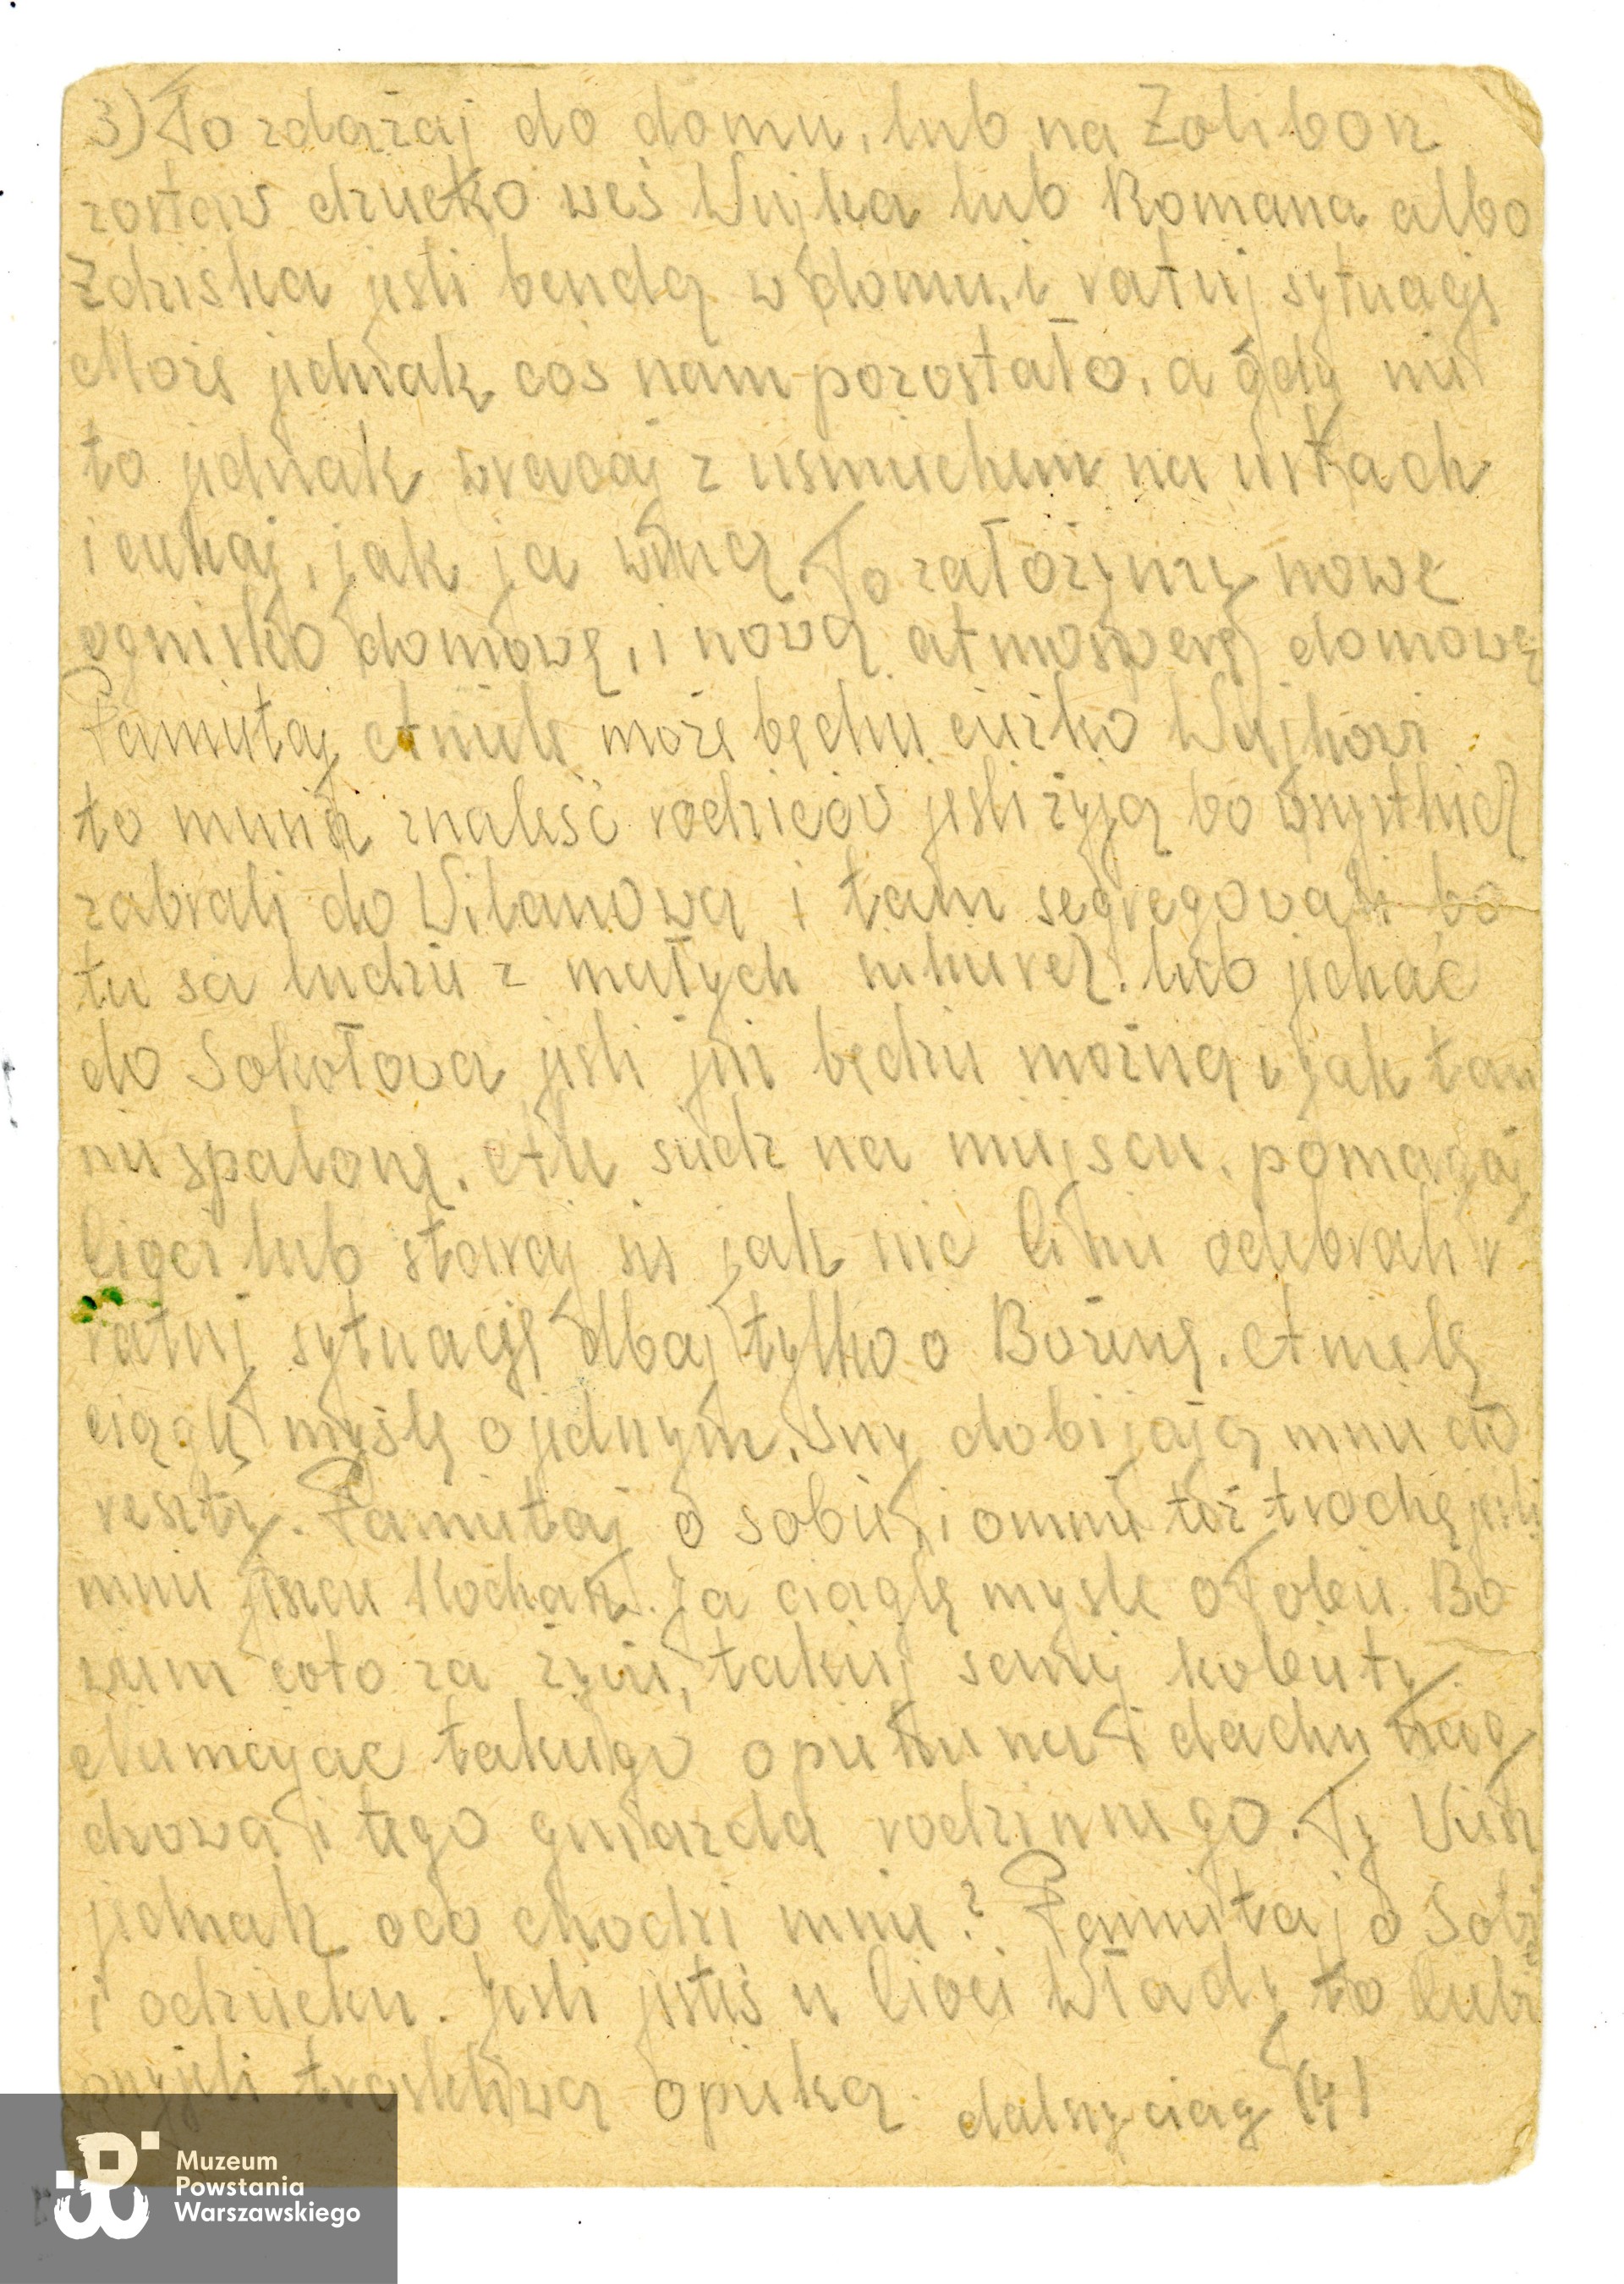 3) To zdążaj do domu, lub na Żoliborz
zostaw dziecko weś Wujka lub Romana albo
Zdziska jeśli bendą w domu, i ratuj sytuację
Może jednak coś nam pozostało, a gdy nie
to jednak wracaj z usmiechem na ustach
i czekaj, jak ja wrucę. To założymy nowe
ognisko domowę, i nową atmosferę domową
Pamiętaj Aniele może będzie cieżko Wujkowi
to musia znaleść rodziców jeśli żyją bo wszystkich
zabrali do Wilanowa i tam segregowali bo
tu sa ludzie z małych sikierek! lub jechać
do Sokołowa jeśli już będzie można i jak tam
nie spalonę. A tu siedz na miejscu, pomagaj
Cioci lub staraj się jak nic Ci nie odebrali
ratuj sytuację dbaj tylko o Bożenę. Aniele
ciągle myślę o jednym. Sny dobijają mnie do
reszty. Pamiętaj o sobie, i omnie też trochę jeśli
mnie jescze Kochasz. Ja ciaglę mysle o Tobie. Bo
wiem coto za życie, takiej samej kobiety.
Niemając takiego opiekuna i dachu nad
głowa i tego gniazda rodzinnego. Ty Wiesz
jednak oco chodzi mnie? Pamiętaj o Sobie
i odziecku. Jeśli jesteś u Cioci Włady to Ciebie
przyjeli troskliwą opieką. dalszy ciag (4)
Muzeum
Powstania
Warszawskiego